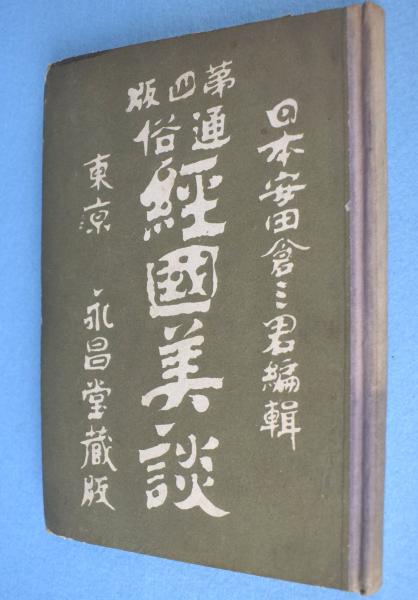 日本安田倉三君編輯
第四版
通俗
經國美談
東京
永昌堂藏版